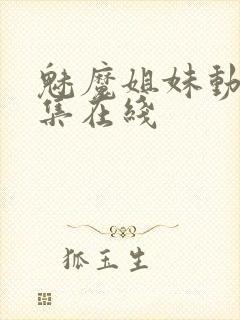 魅魔姐妹動
集在綫
狐玉生